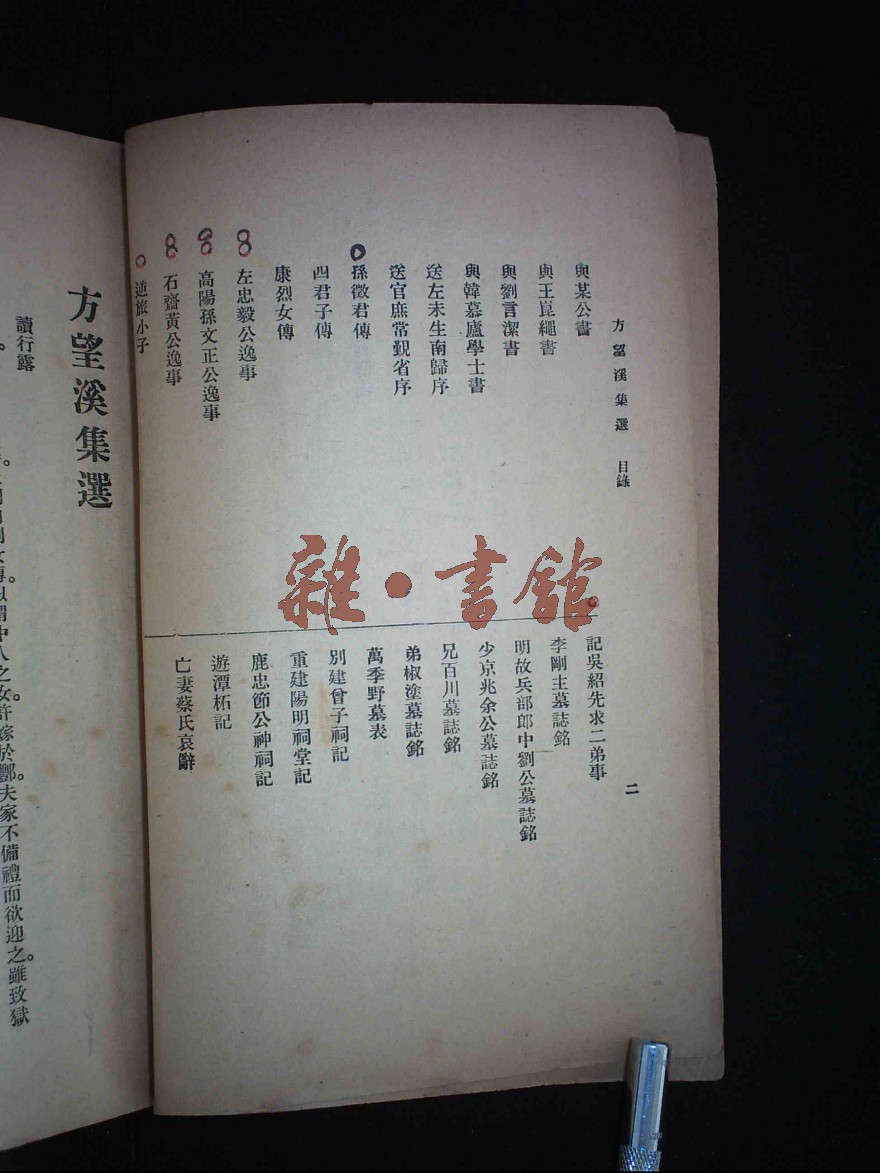 方望溪集選　目錄
二
與某公書
與王崑繩書
與劉言潔書
與韓慕廬學士書
送左未生南歸序
送官庶常覲省序
孫徵君傳
四君子傳
康烈女傳
左忠毅公逸事
高陽孫文正公逸事
石齋黃公逸事
逆旅小子
記吳紹先求二弟事
李剛主墓誌銘
明故兵部郎中劉公墓誌銘
少京兆余公墓誌銘
兄百川墓誌銘
弟椒塗墓誌銘
萬季野墓表
別建曾子祠記
重建陽明祠堂記
鹿忠節公神祠記
遊潭柘記
亡妻蔡氏哀辭
方望溪集選
讀行露
之女許嫁於酆。夫家不備禮而欲迎之。雖致獄
雜·書館